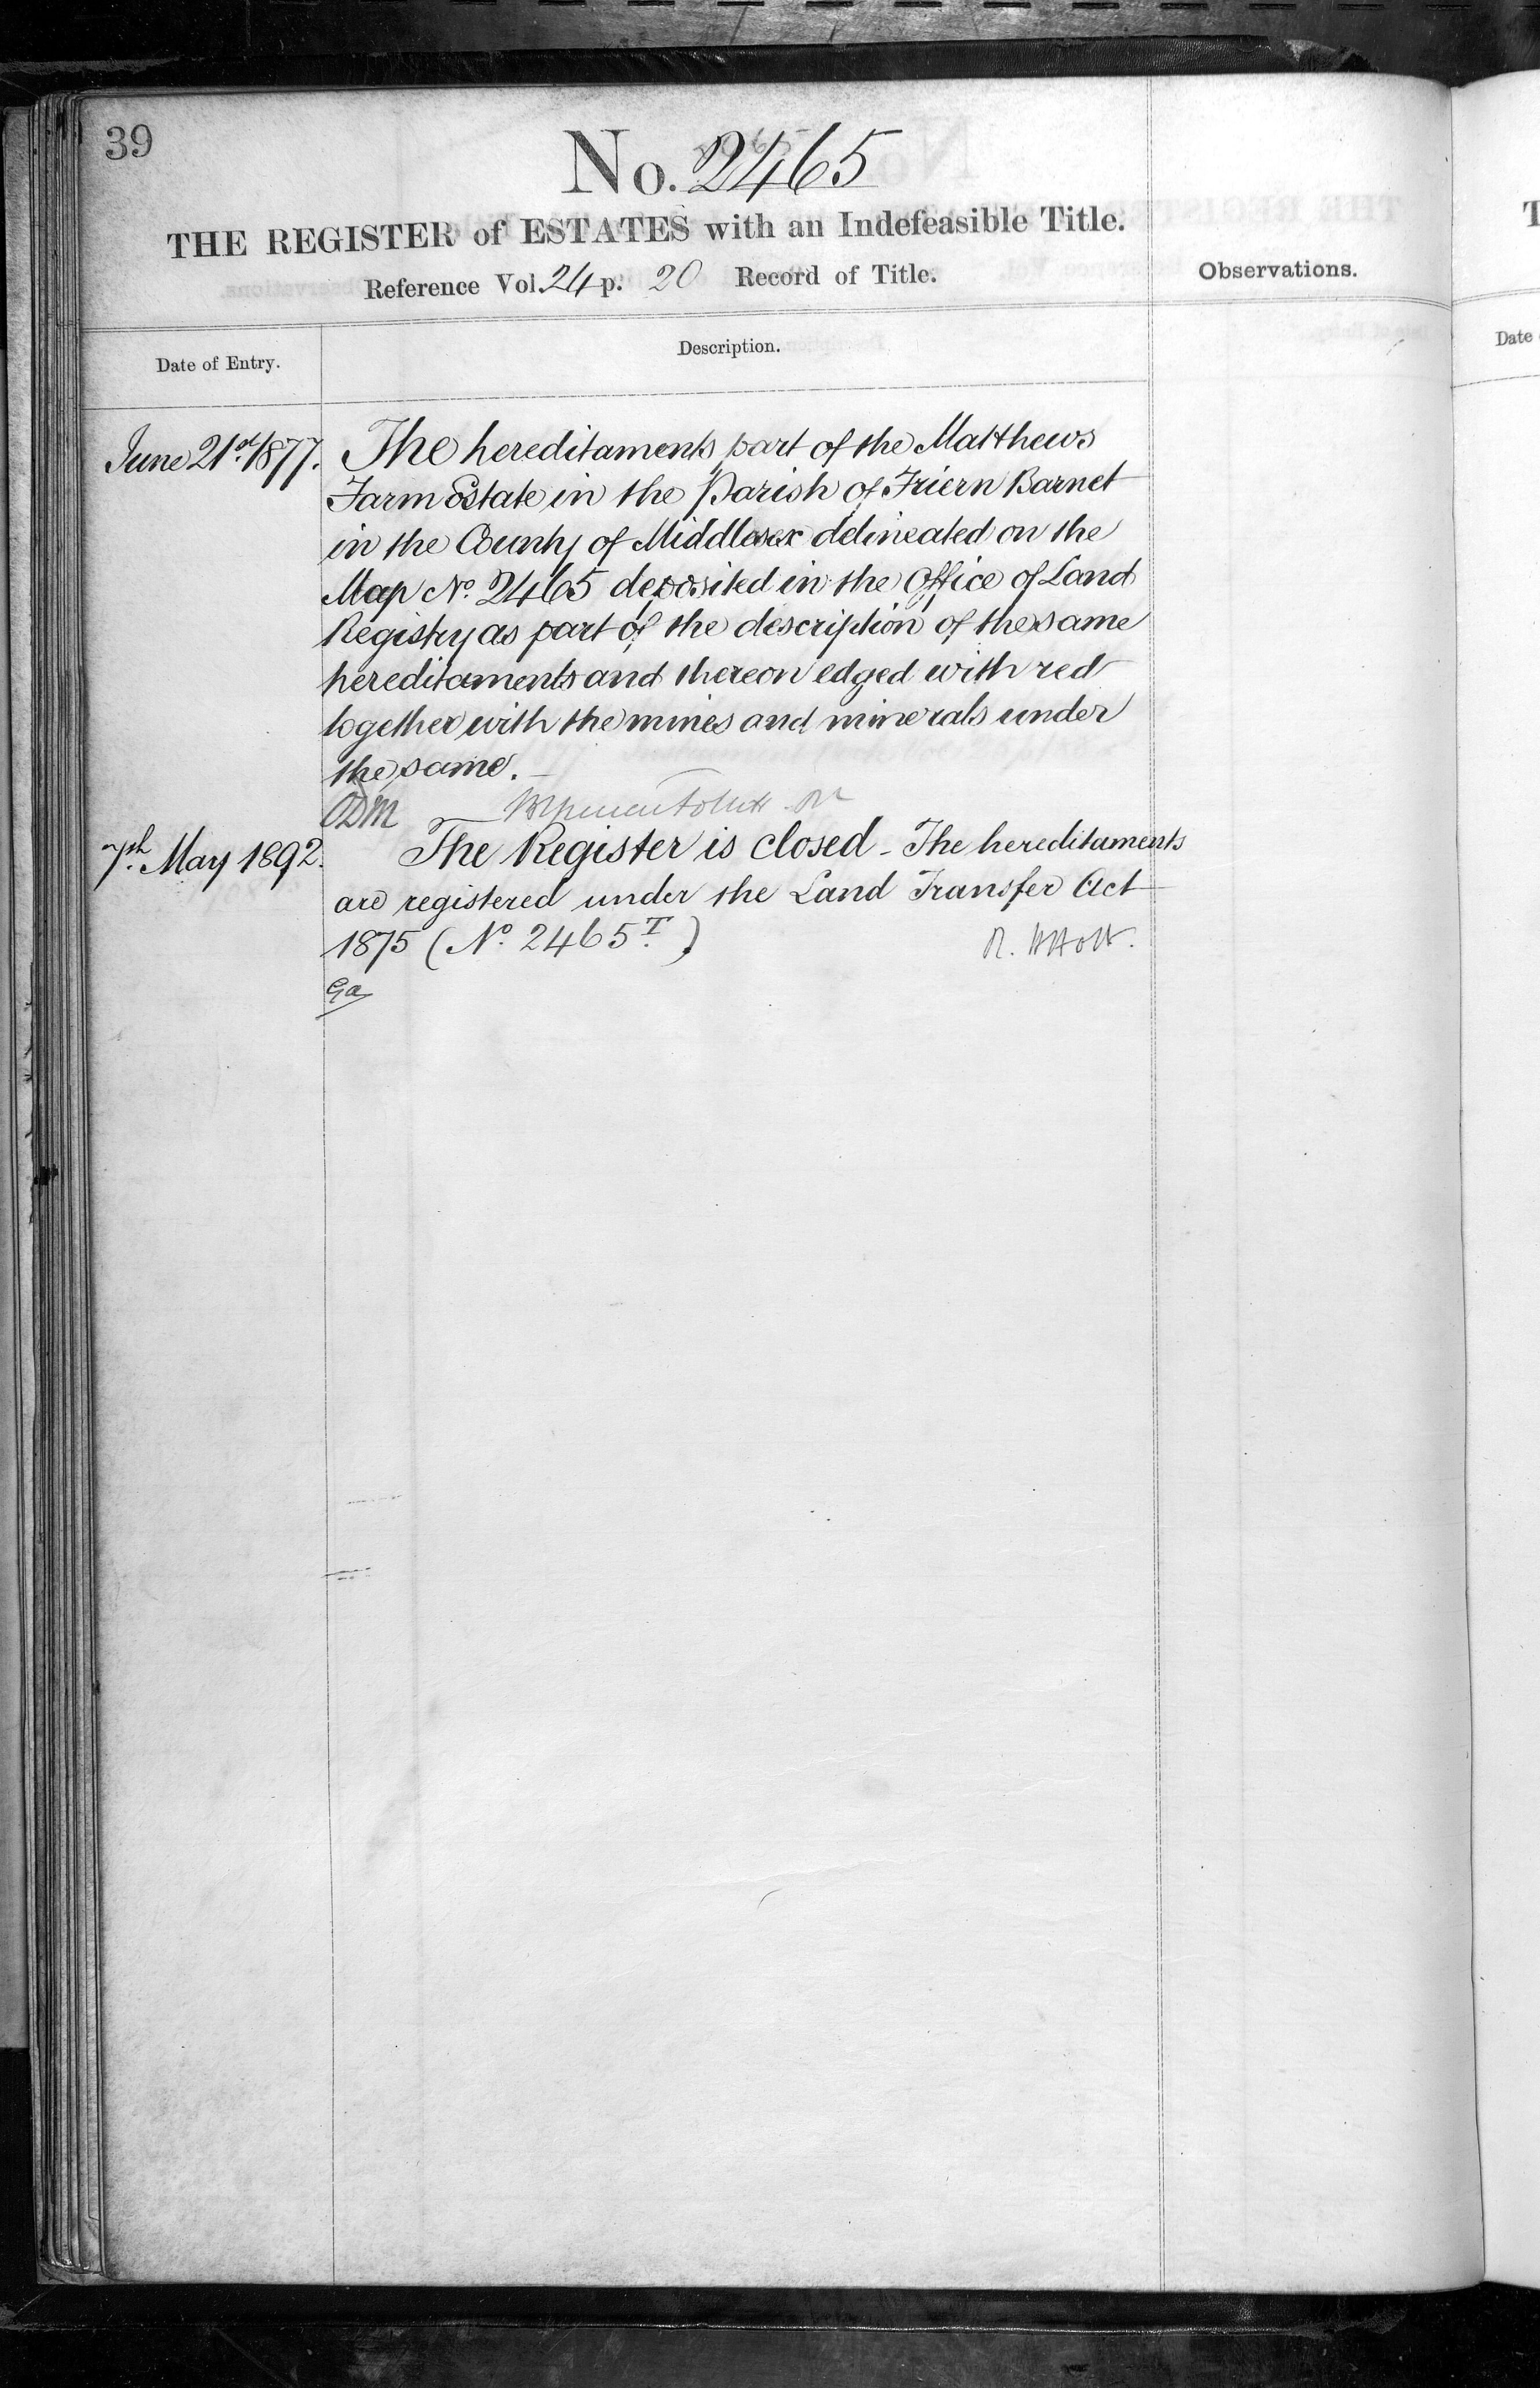 39
No. 2465
THE REGISTER of ESTATES with an Indefeasible Title.
Reference Vol. 24 p. 20 Record of Title.
Observations.
Date of Entry.
Description.
June 21st 1877. The hereditaments part of the Matthews
Farm Estate in the Parish of Friern Barnet
in the County of Middlesex delineated on the
Map No. 2465 deposited in the Office of Land
Registry as part of the description of the same
hereditaments and thereon edged with red
together with the mines and minerals under
the same.
ODM
7th May 1892. The Register is closed - The hereditaments
are registered under the Land Transfer Act
1875 (No. 2465T.)
R. Holt.
Ga
Date